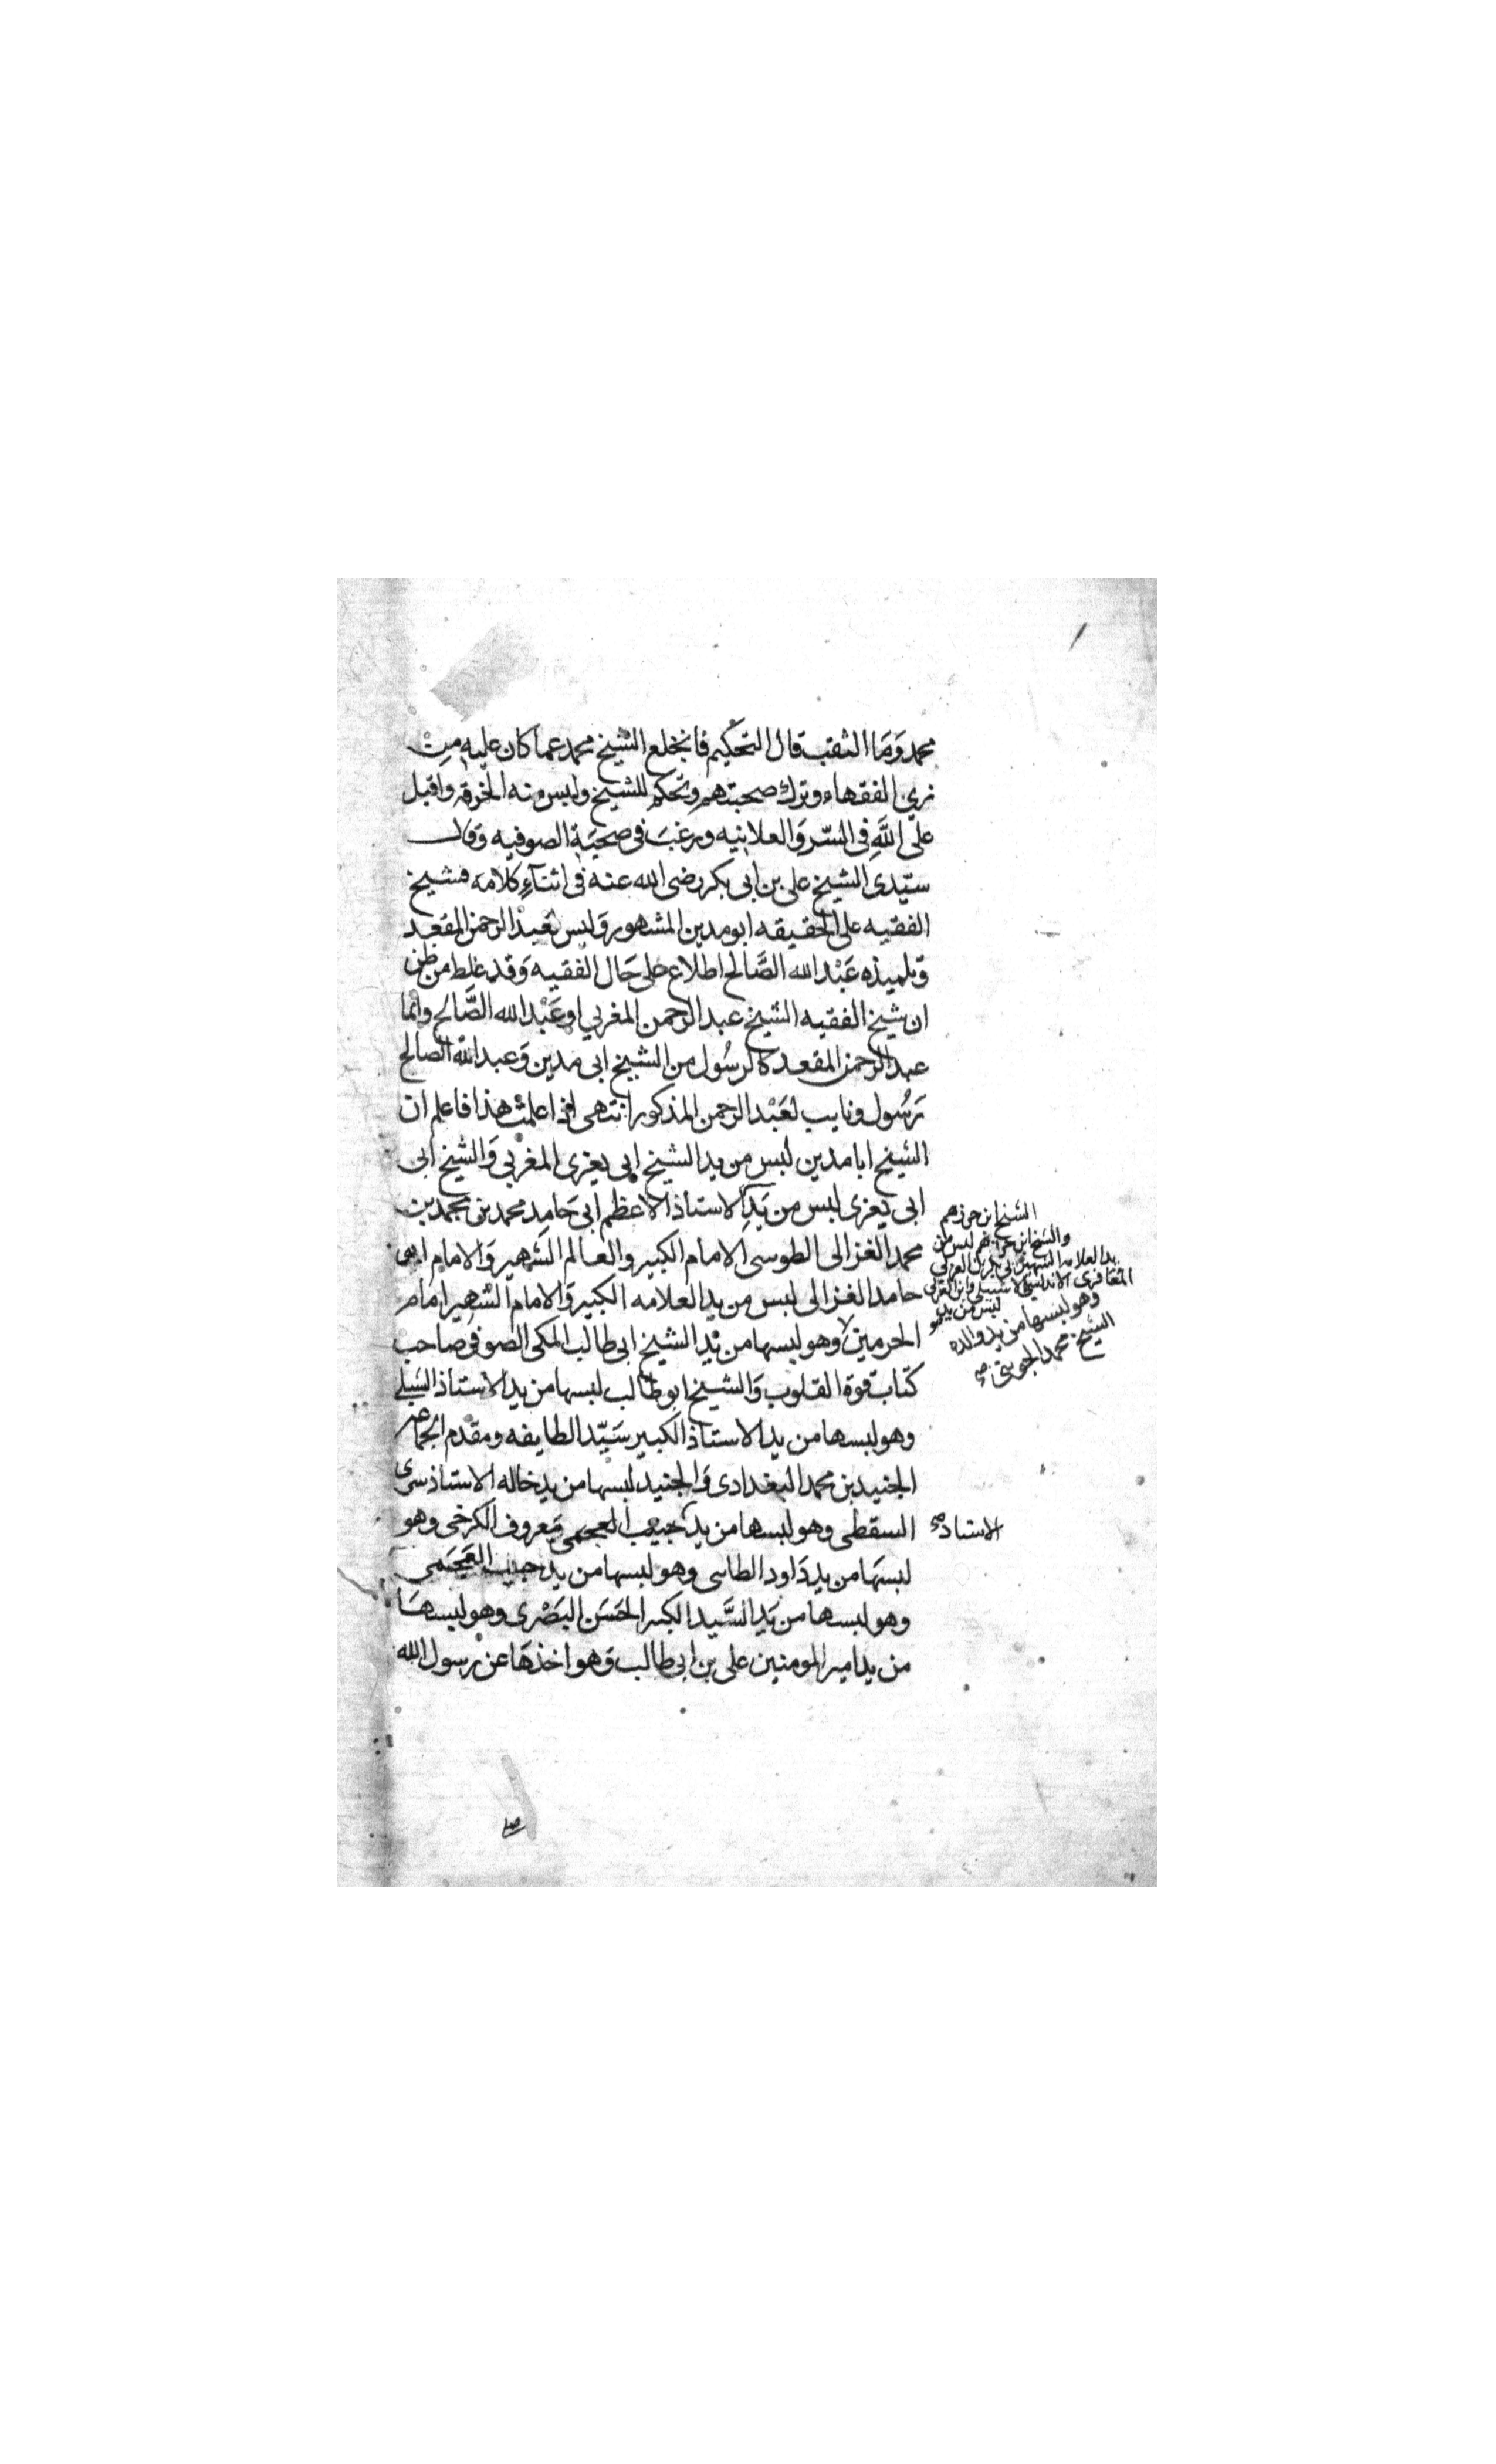 محمد وَمَا الثقب قال التحكيم فانخلع الشيخ محمد عما كان عليه مِنْ
زي الفقهاء وترك صحبتهم وتحكم للشيخ ولبس منه الخرقة واقبل
على اللهِ فى السّر وَالعلانيه ورغبَ فى صحبَة الصوفيه وقال
سيّدى الشيخ على بن ابى بكر رضى الله عنه فى اثنآءِ كلامه فشيخ
الفقيه على الحقيقه ابو مدين المشهور وَليس لعَبد الرحمن المقعد
وتلميذه عَبْد الله الصَّالح اطلاع على حَال الفقيه وَقد غلط من ظن
ان شيخ الفقيه الشيخ عبد الرحمن المغربي او عَبْد الله الصَّالح وانما
عبد الرحمن المقعد كالرسُول من الشيخ ابى مدين وَعبد الله الصالح
رَسُول ونايب لعَبْد الرحمن المذكور انتهى اذا علمت هذا فاعلم ان
الشيخ ابا مدين لبس من يد الشيخ ابي يعزى المغربي وَالشيخ ابى
ابى يعزى لبس من يَدِ الاستاذ الاعظم ابى حَامِد محمد بن محمد بن
محمد الغزالى الطوسى الامام الكبير والعالم الشهير وَالامام ابى
حامد الغزالى لبس من يد العلامه الكبير وَالامام الشهير امام
الحرمين وهو لبسها من يد الشيخ ابى طالب المكى الصوفى صاحب
كتاب قوة القلوب وَالشيخ ابو طالب لبسها من يد الاستاذ الشبلي
وهو لبسها من يد الاستاذ الكبير سَيّد الطايفه ومقدم الجماعة
الجنيد بن محمد البغدادى وَالجنيد لبسها من يد خاله الاستاذ سرى
السقطى وهو لبسها من يد حبيب العجمى مَعروف الكرخى وهو
لبسهَا من يد دَاود الطاسى وهو لبسها من يد حبيب العَجَمى
وهو لبسها من يَد السَّيد الكبير الحَسَن البَصْرى وهو لبسهَا
من يد امير المومنين على بن ابى طالب وهو اخذهَا عن رسول الله
الشيخ ابن حرزهم
والشيخ ابن حرزهم لبس من
يد العلامه الشهير ابي بكر بن العربي
المعَافرى الاندلسى الاشبيلى وابن العربى
لبس من يد
وهو لبسها من يد والده
الشيخ محمد الجوينى صح
الاستاذ صح